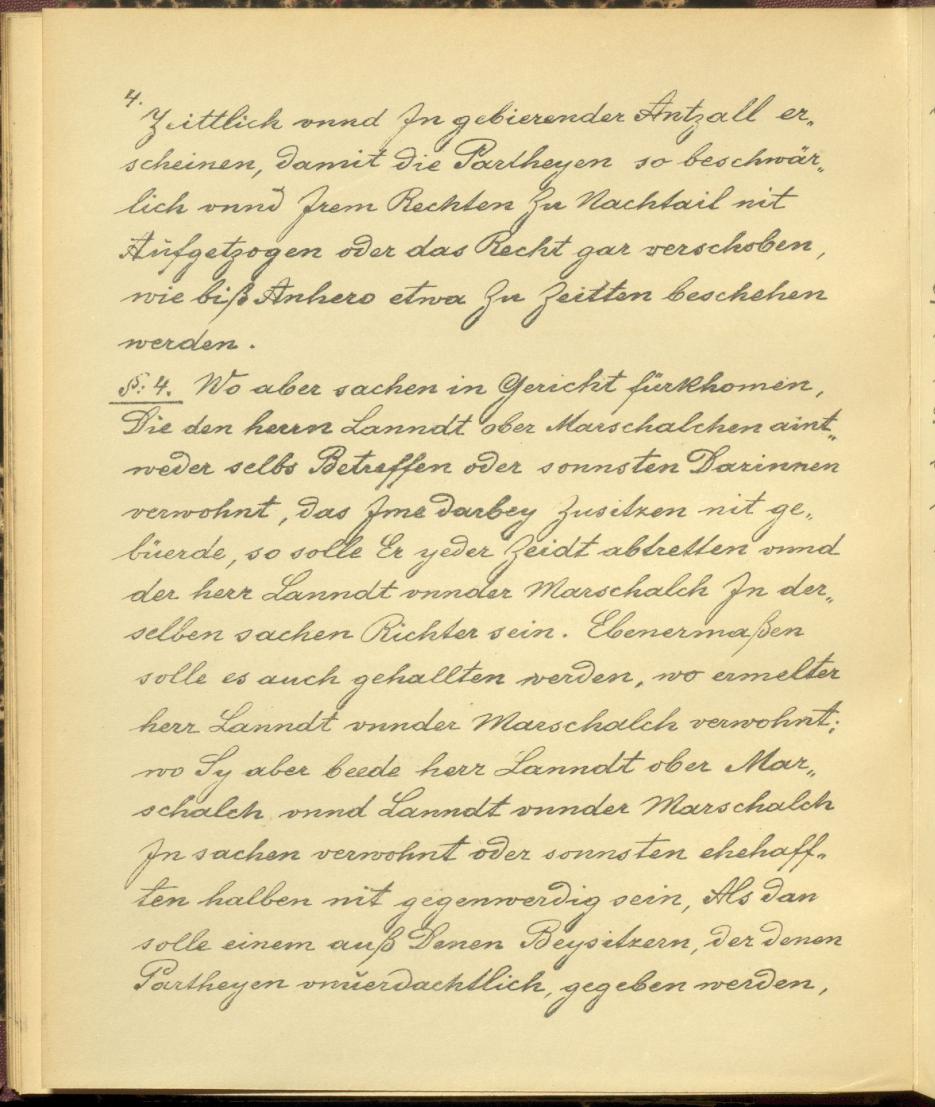 4.
Zeittlich vnnd Jn gebierender Antzall er„
scheinen, damit die Partheyen so beschwär„
lich vnnd Jrem Rechten Zu Nachtail nit
Aufgetzogen oder das Recht gar verschoben,
wie biß Anhero etwa Zu Zeitten beschehen
werden.
§. 4. Wo aber sachen in Gericht fürkhomen,
Die den herrn Lanndt ober Marschalchen aint„
weder selbs Betreffen oder sonnsten Darinnen
verwohnt, das Jme darbey Zusitzen nit ge„
büerde, so solle Er yeder Zeidt abtretten vnnd
der herr Lanndt vnnder Marschalch Jn der„
selben sachen Richter sein. Ebenermaßen
solle es auch gehallten werden, wo ermelter
herr Lanndt vnnder Marschalch verwohnt;
wo Sy aber beede herr Lanndt ober Mar„
schalch vnnd Lanndt vnnder Marschalch
Jn sachen verwohnt oder sonnsten ehehaff„
ten halben nit gegenwerdig sein, Als dan
solle einem auß Denen Beysitzern, der denen
Partheyen vnuerdachtlich, gegeben werden,